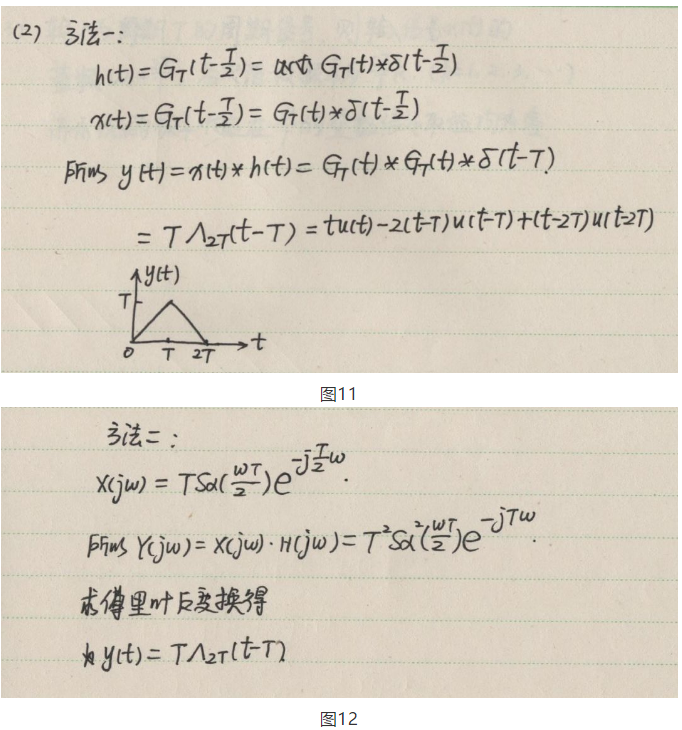 (2) 方法一:
h(t) = G_T(t-T/2) = G_T(t)*δ(t-T/2)
x(t) = G_T(t-T/2) = G_T(t)*δ(t-T/2)
所以 y(t) = x(t)*h(t) = G_T(t)*G_T(t)*δ(t-T)
= TΛ_{2T}(t-T) = tu(t)-2(t-T)u(t-T)+(t-2T)u(t-2T)
y(t)
T
0 T 2T t
图11
方法二:
X(jω) = TSa(ωT/2)e^{-jT/2 ω}.
所以 Y(jω) = X(jω)·H(jω) = T²Sa²(ωT/2)e^{-jTω}.
求傅里叶反变换得
y(t) = TΛ_{2T}(t-T)
图12